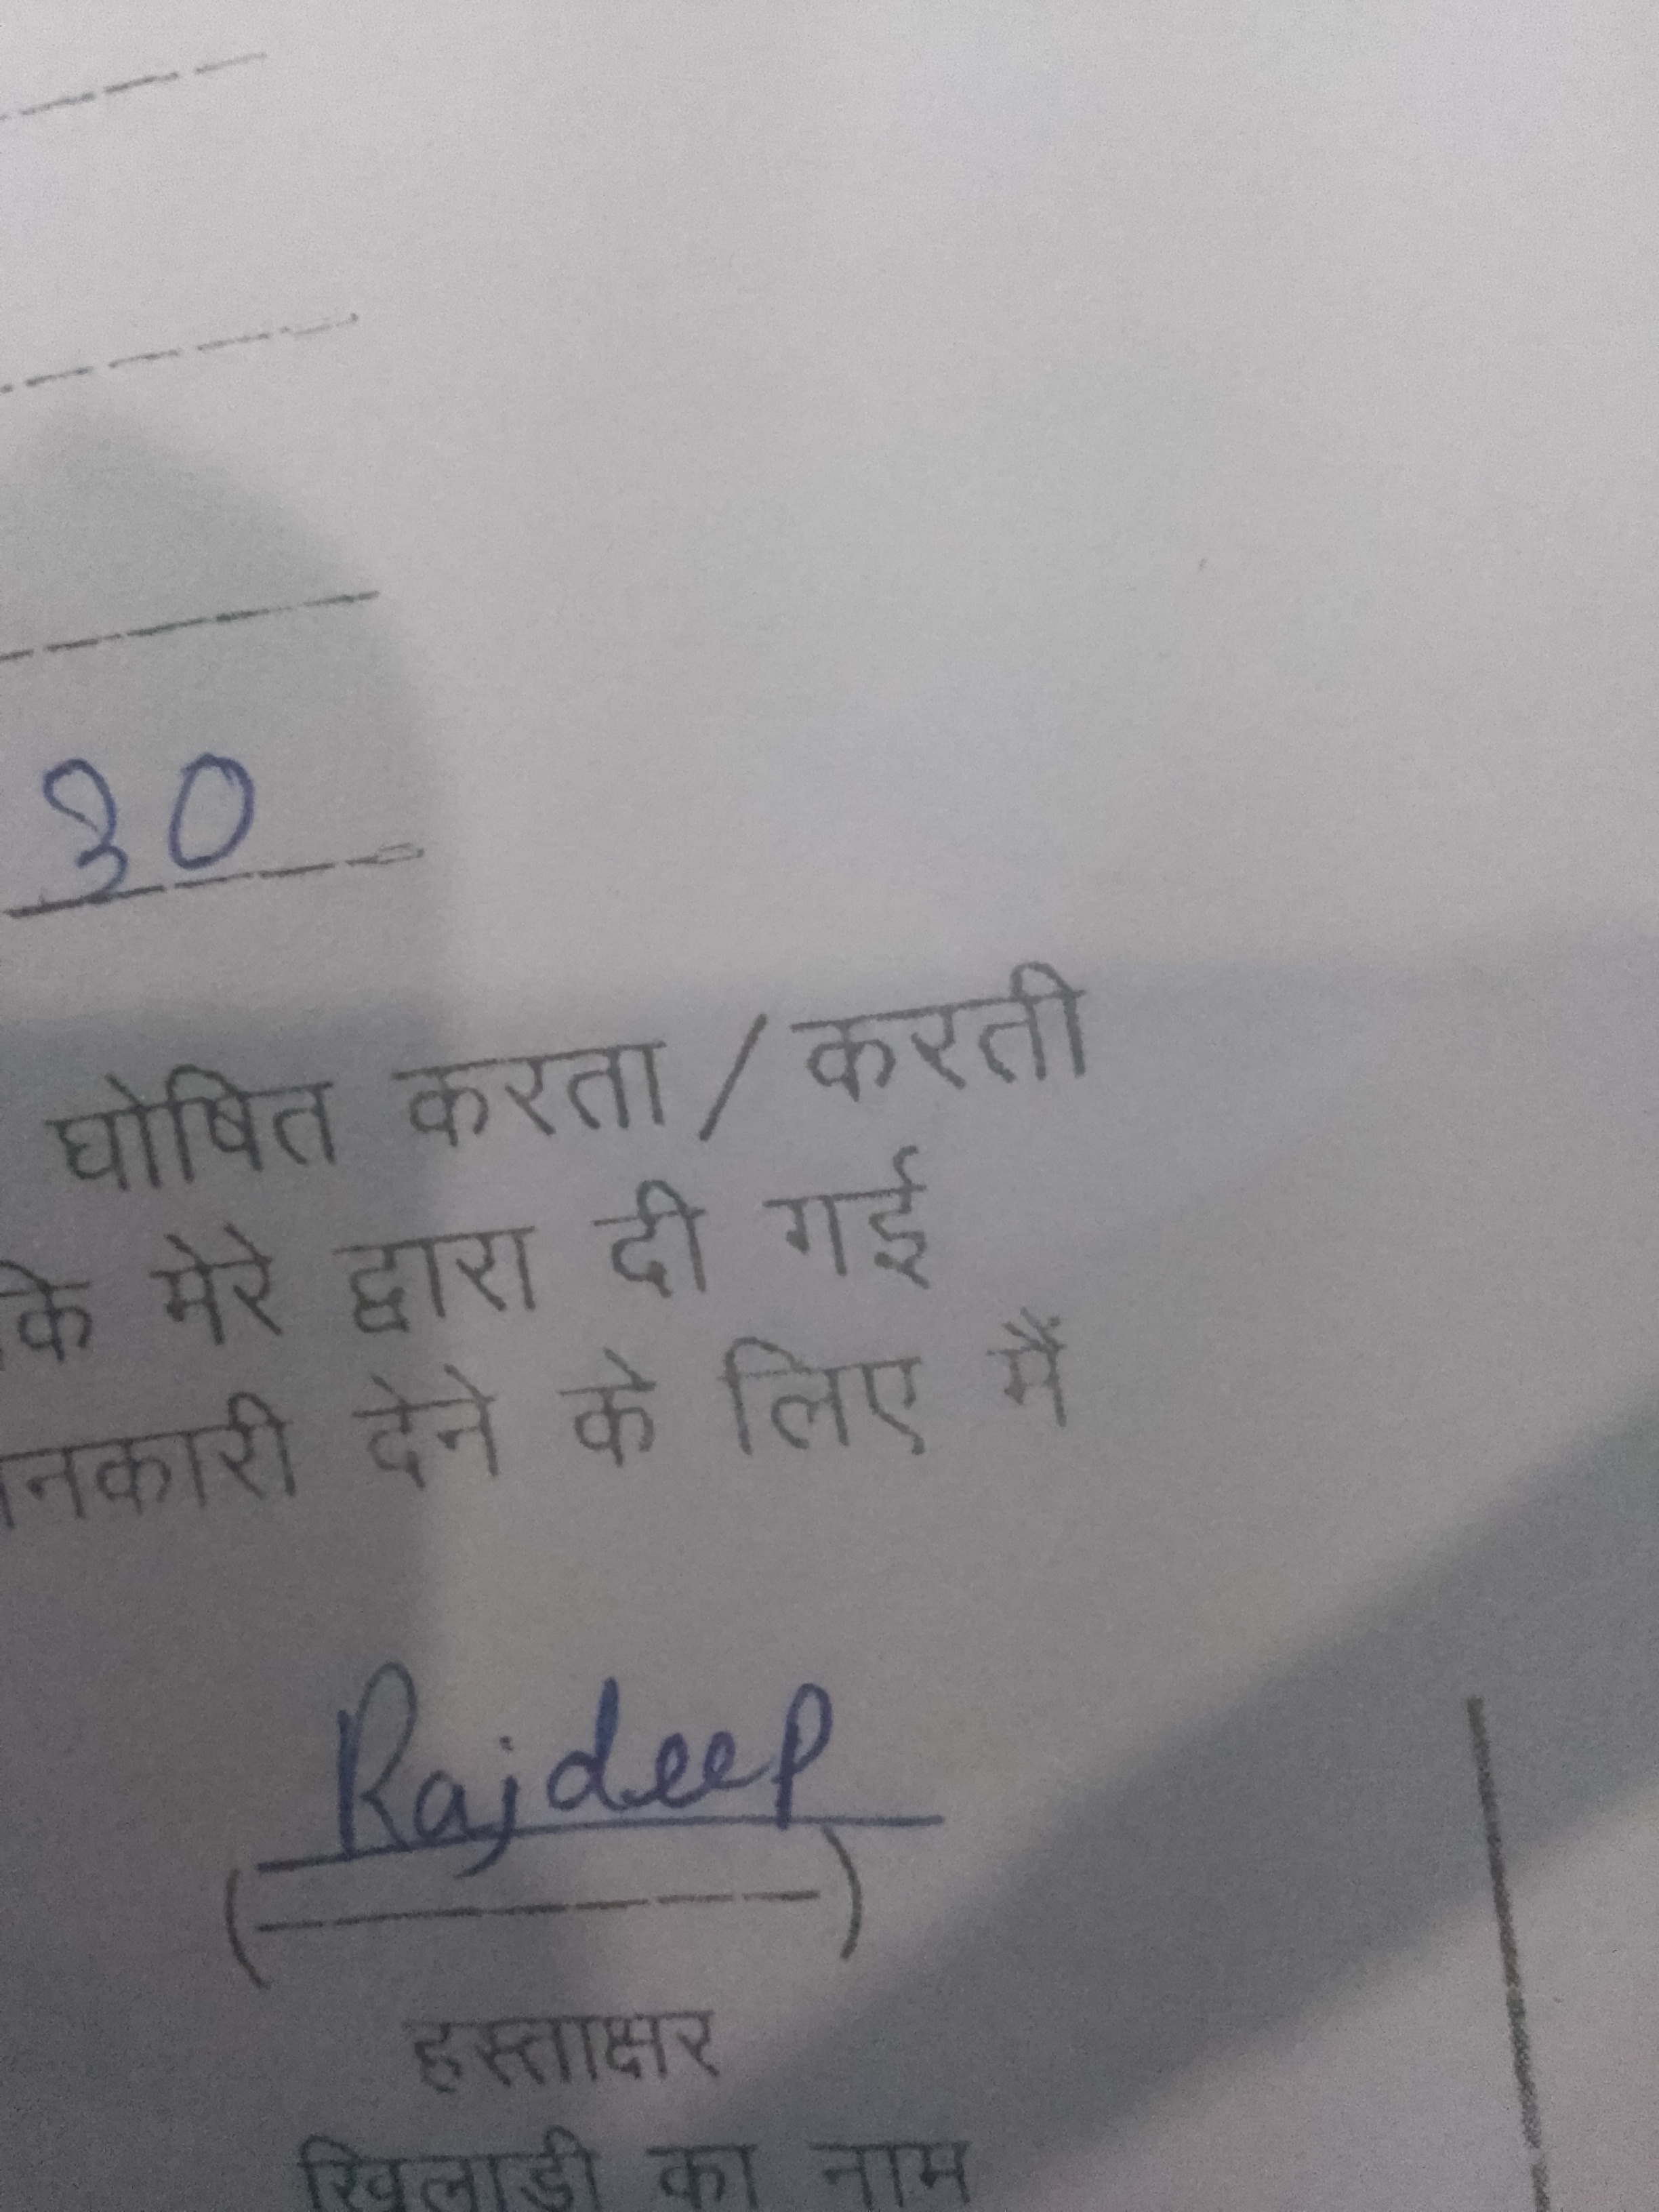 30
घोषित करता / करती
के मेरे द्वारा दी गई
नकारी देने के लिए मैं
Rajdeep
(---------)
हस्ताक्षर
खिलाडी का नाम